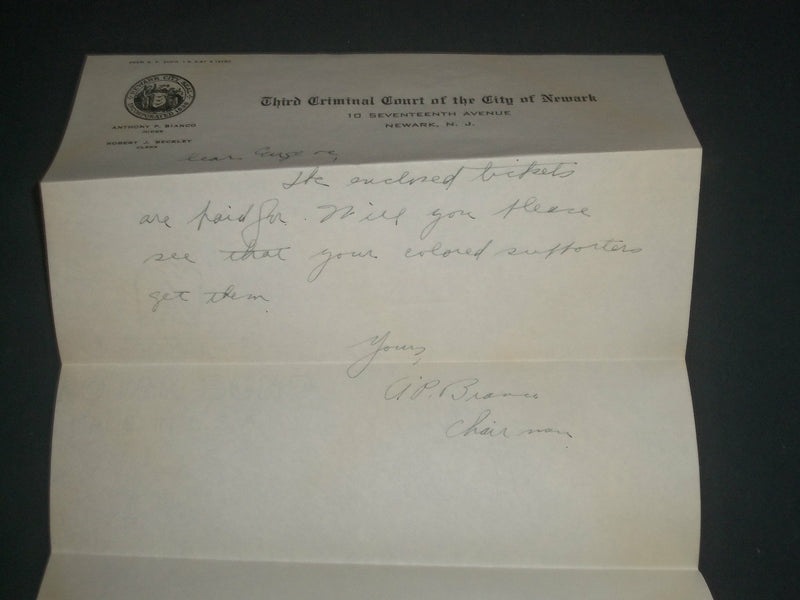 NEWARK CITY SEAL
INCORPORATED 1836
ANTHONY P. BIANCO
JUDGE
ROBERT J. BECKLEY
CLERK
Third Criminal Court of the City of Newark
10 SEVENTEENTH AVENUE
NEWARK, N. J.
Dear
The enclosed tickets
are paid for. Will you please
see that your colored supporters
get them
Yours,
A P. Bianco
Chairman